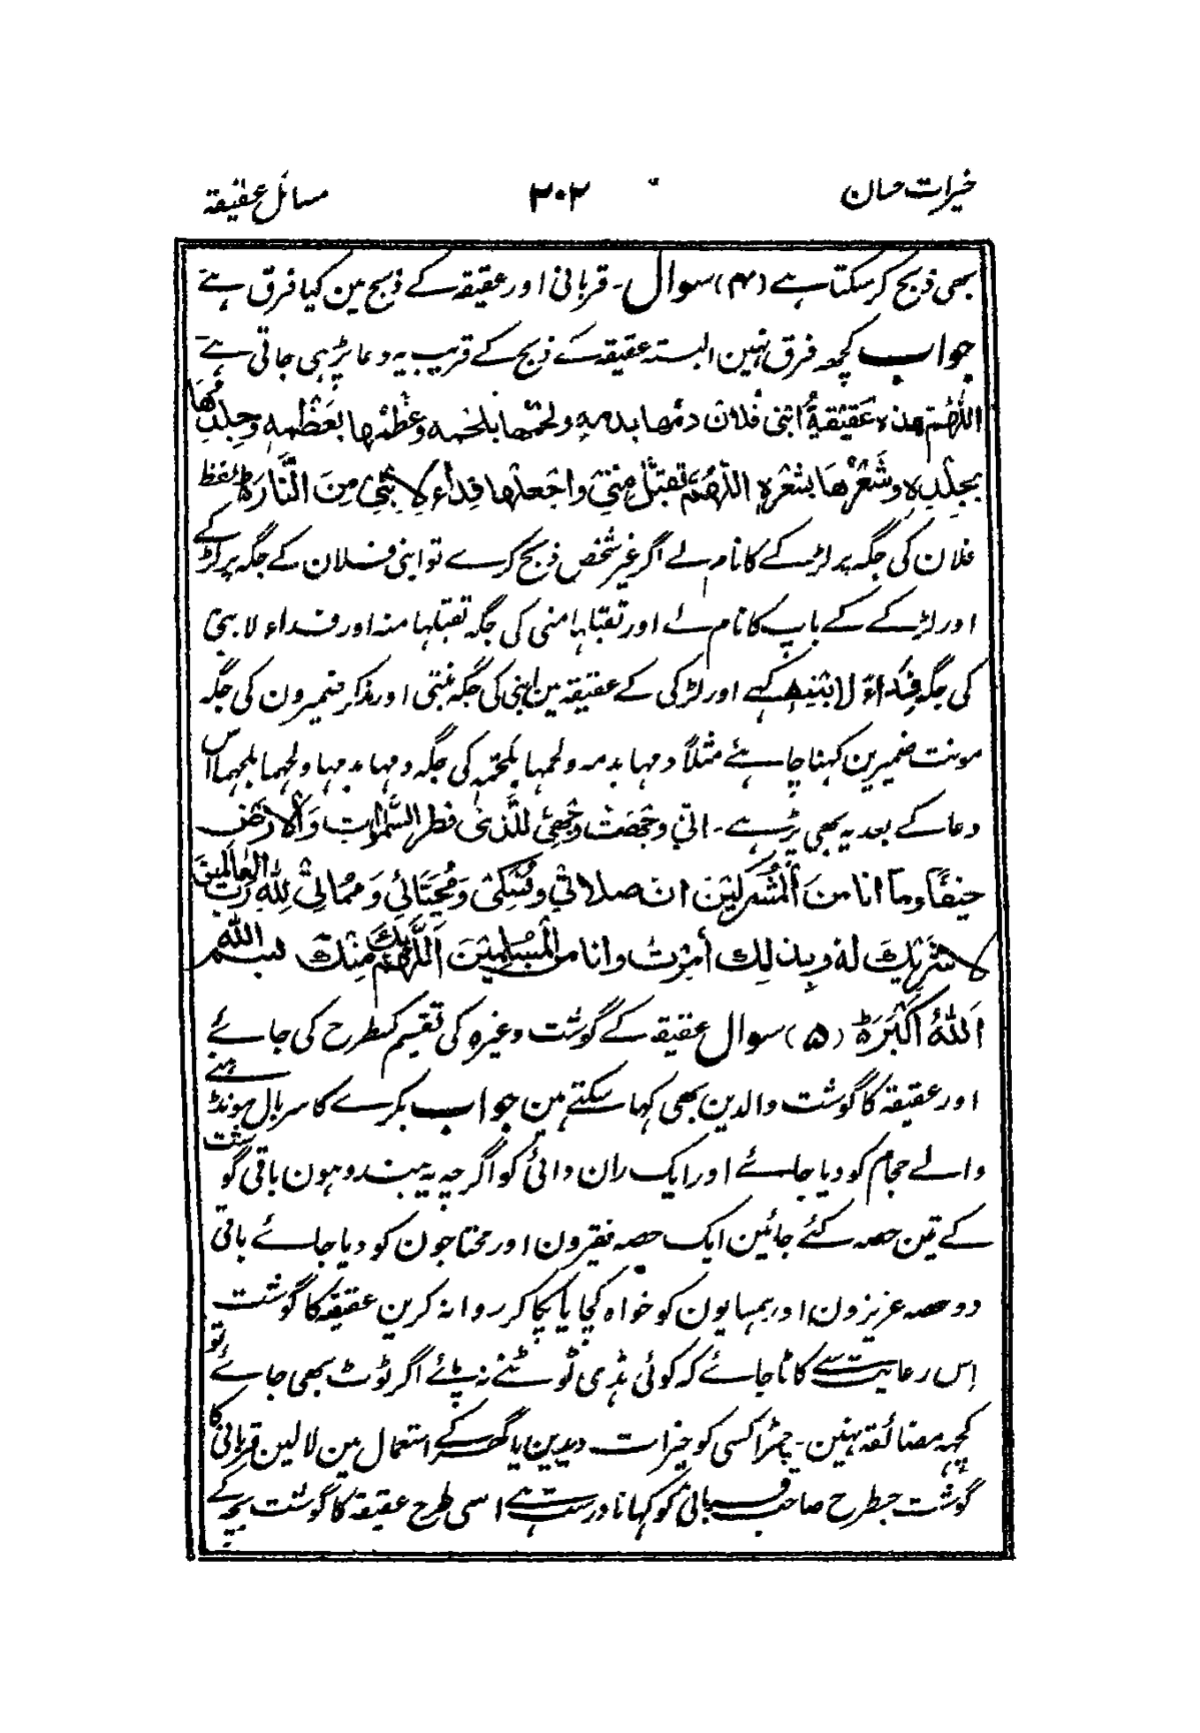 خیرات حسان ۳۰۲ مسائل عقیقہ
بھی ذبح کر سکتا ہے (۴) سوال ۔ قربانی اور عقیقہ کے ذبح مین کیا فرق ہے
جواب کچھ فرق نہین البتہ عقیقہ کے ذبح کے قریب یہ دعا پڑہی جاتی ہے
اَللّٰھُمَّ ھٰذہٖ عَقِیْقَۃُ ابْنِیْ فُلَان دَمُھَا بدمہٖ ولَحْمُھَا بلَحْمہٖ وعَظْمُھا بعَظْمِہٖ وجِلدُھَا
بجِلْدِہٖ وشَعْرُھَا بشَعْرِہٖ اَللّٰھُمَّ تَقَبَّلْ مِنِّیْ واجْعَلْھا فِدَاءً لِاِبْنِیْ مِنَ النَّارِ ؕ لفظ
فلان کی جگہ پر لڑکے کا نام لے اگر غیر شخص ذبح کرے تو ابنی فلان کے جگہ پر لڑکے
اور لڑکے کے باپ کا نام لے اور تقبلہا منی کی جگہ تقبلہا منہ اور فداء لابنی
کی جگہ فِدَاءً لابْنِہٖ کہے اور لڑکی کے عقیقہ مین ابنی کی جگہ بنتی اور مذکر ضمیرون کی جگہ
مونث ضمیرین کہنا چاہئے مثلاً دمہا بدمہ ولحمہا بلحمہ کی جگہ دمہا بدمہا ولحمہا بلحمہا اس
دعا کے بعد یہ بھی پڑہے ۔ انّی وجّھتُ وَجْھِیَ للَّذِیْ فطر السَّمٰوٰتِ وَالْاَرْضَ
حنیفًا وما انا منَ الْمُشْرِکِیْنَ ان صلاتی ونُسُکِیْ وَمَحْیَائِیْ وَمَمَاتِیْ لِلّٰہِ رَبِّ الْعَالَمِیْنَ
لا شَرِیْکَ لہٗ وبذٰلِکَ اُمِرْتُ وانا من الْمُسْلِمِیْنَ اَللّٰھُمَّ مِنْکَ بِکَ بسم اللّٰہ
اَللّٰہُ اَکْبَر ؕ (۵) سوال عقیقہ کے گوشت وغیرہ کی تقسیم کسطرح کی جائے
اور عقیقہ کا گوشت والدین بھی کہا سکتے ہین جواب بکرے کا سر بال مونڈنے
والے حجام کو دیا جائے اور ایک ران دائی کو اگرچہ یہ ہندو ہون باقی گوشت
کے تین حصہ کئے جائین ایک حصہ فقیرون اور محتاجون کو دیا جائے باقی
دو حصہ عزیزون اور ہمسایون کو خواہ کچا یا پکا کر روانہ کرین عقیقہ کا گوشت
اِس رعایت سے کاٹا جائے کہ کوئی ہڈی ٹوٹنے نہ پائے اگر ٹوٹ بھی جائے تو
کچہہ مضائقہ نہین ۔ چمڑا کسی کو خیرات دیدین یا گھر کے استعمال مین لالین قربانی کا
گوشت جسطرح صاحب قربانی کو کہانا درست ہے اسی طرح عقیقہ کا گوشت بچہ کے